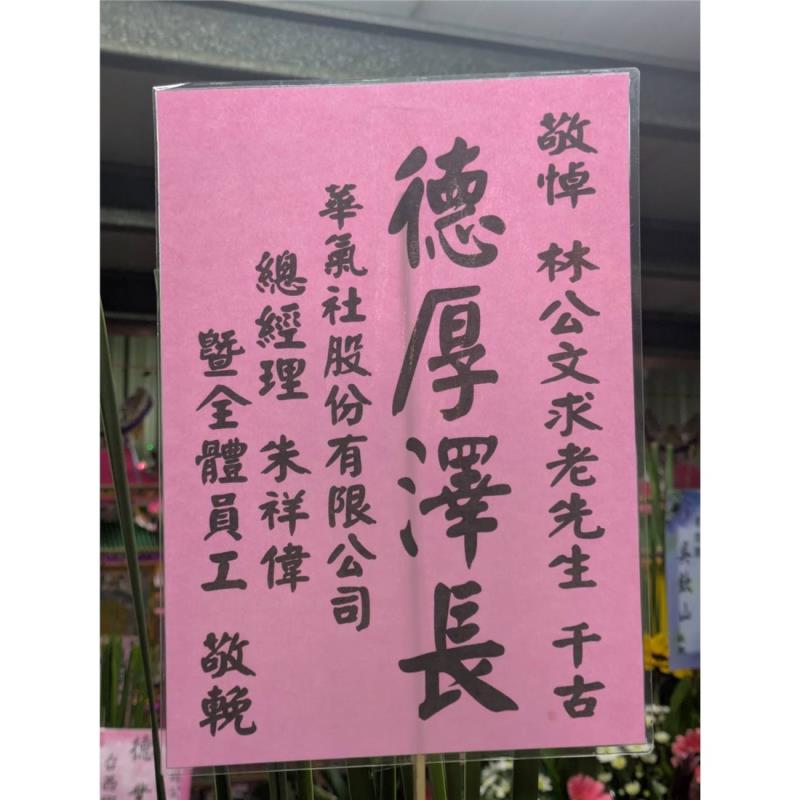 敬悼 林公文求老先生 千古
德厚澤長
華氣社股份有限公司
總經理 朱祥偉
暨全體員工 敬輓